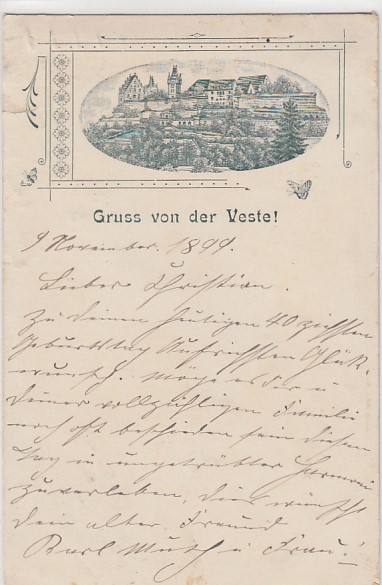 Gruss von der Veste!
9 November. 1899.
Lieber Christian.
Zu deinem heutigen 40 zichsten
Geburtstag Aufrichsten Glück-
wunsch. Möge es dir u
deiner vollzähligen Familie
noch oft beschieden sein diesen
Tag in ungetrübter Harmoni
zu verleben, dies wünscht
dein alter Freund
Karl Muth u Frau!